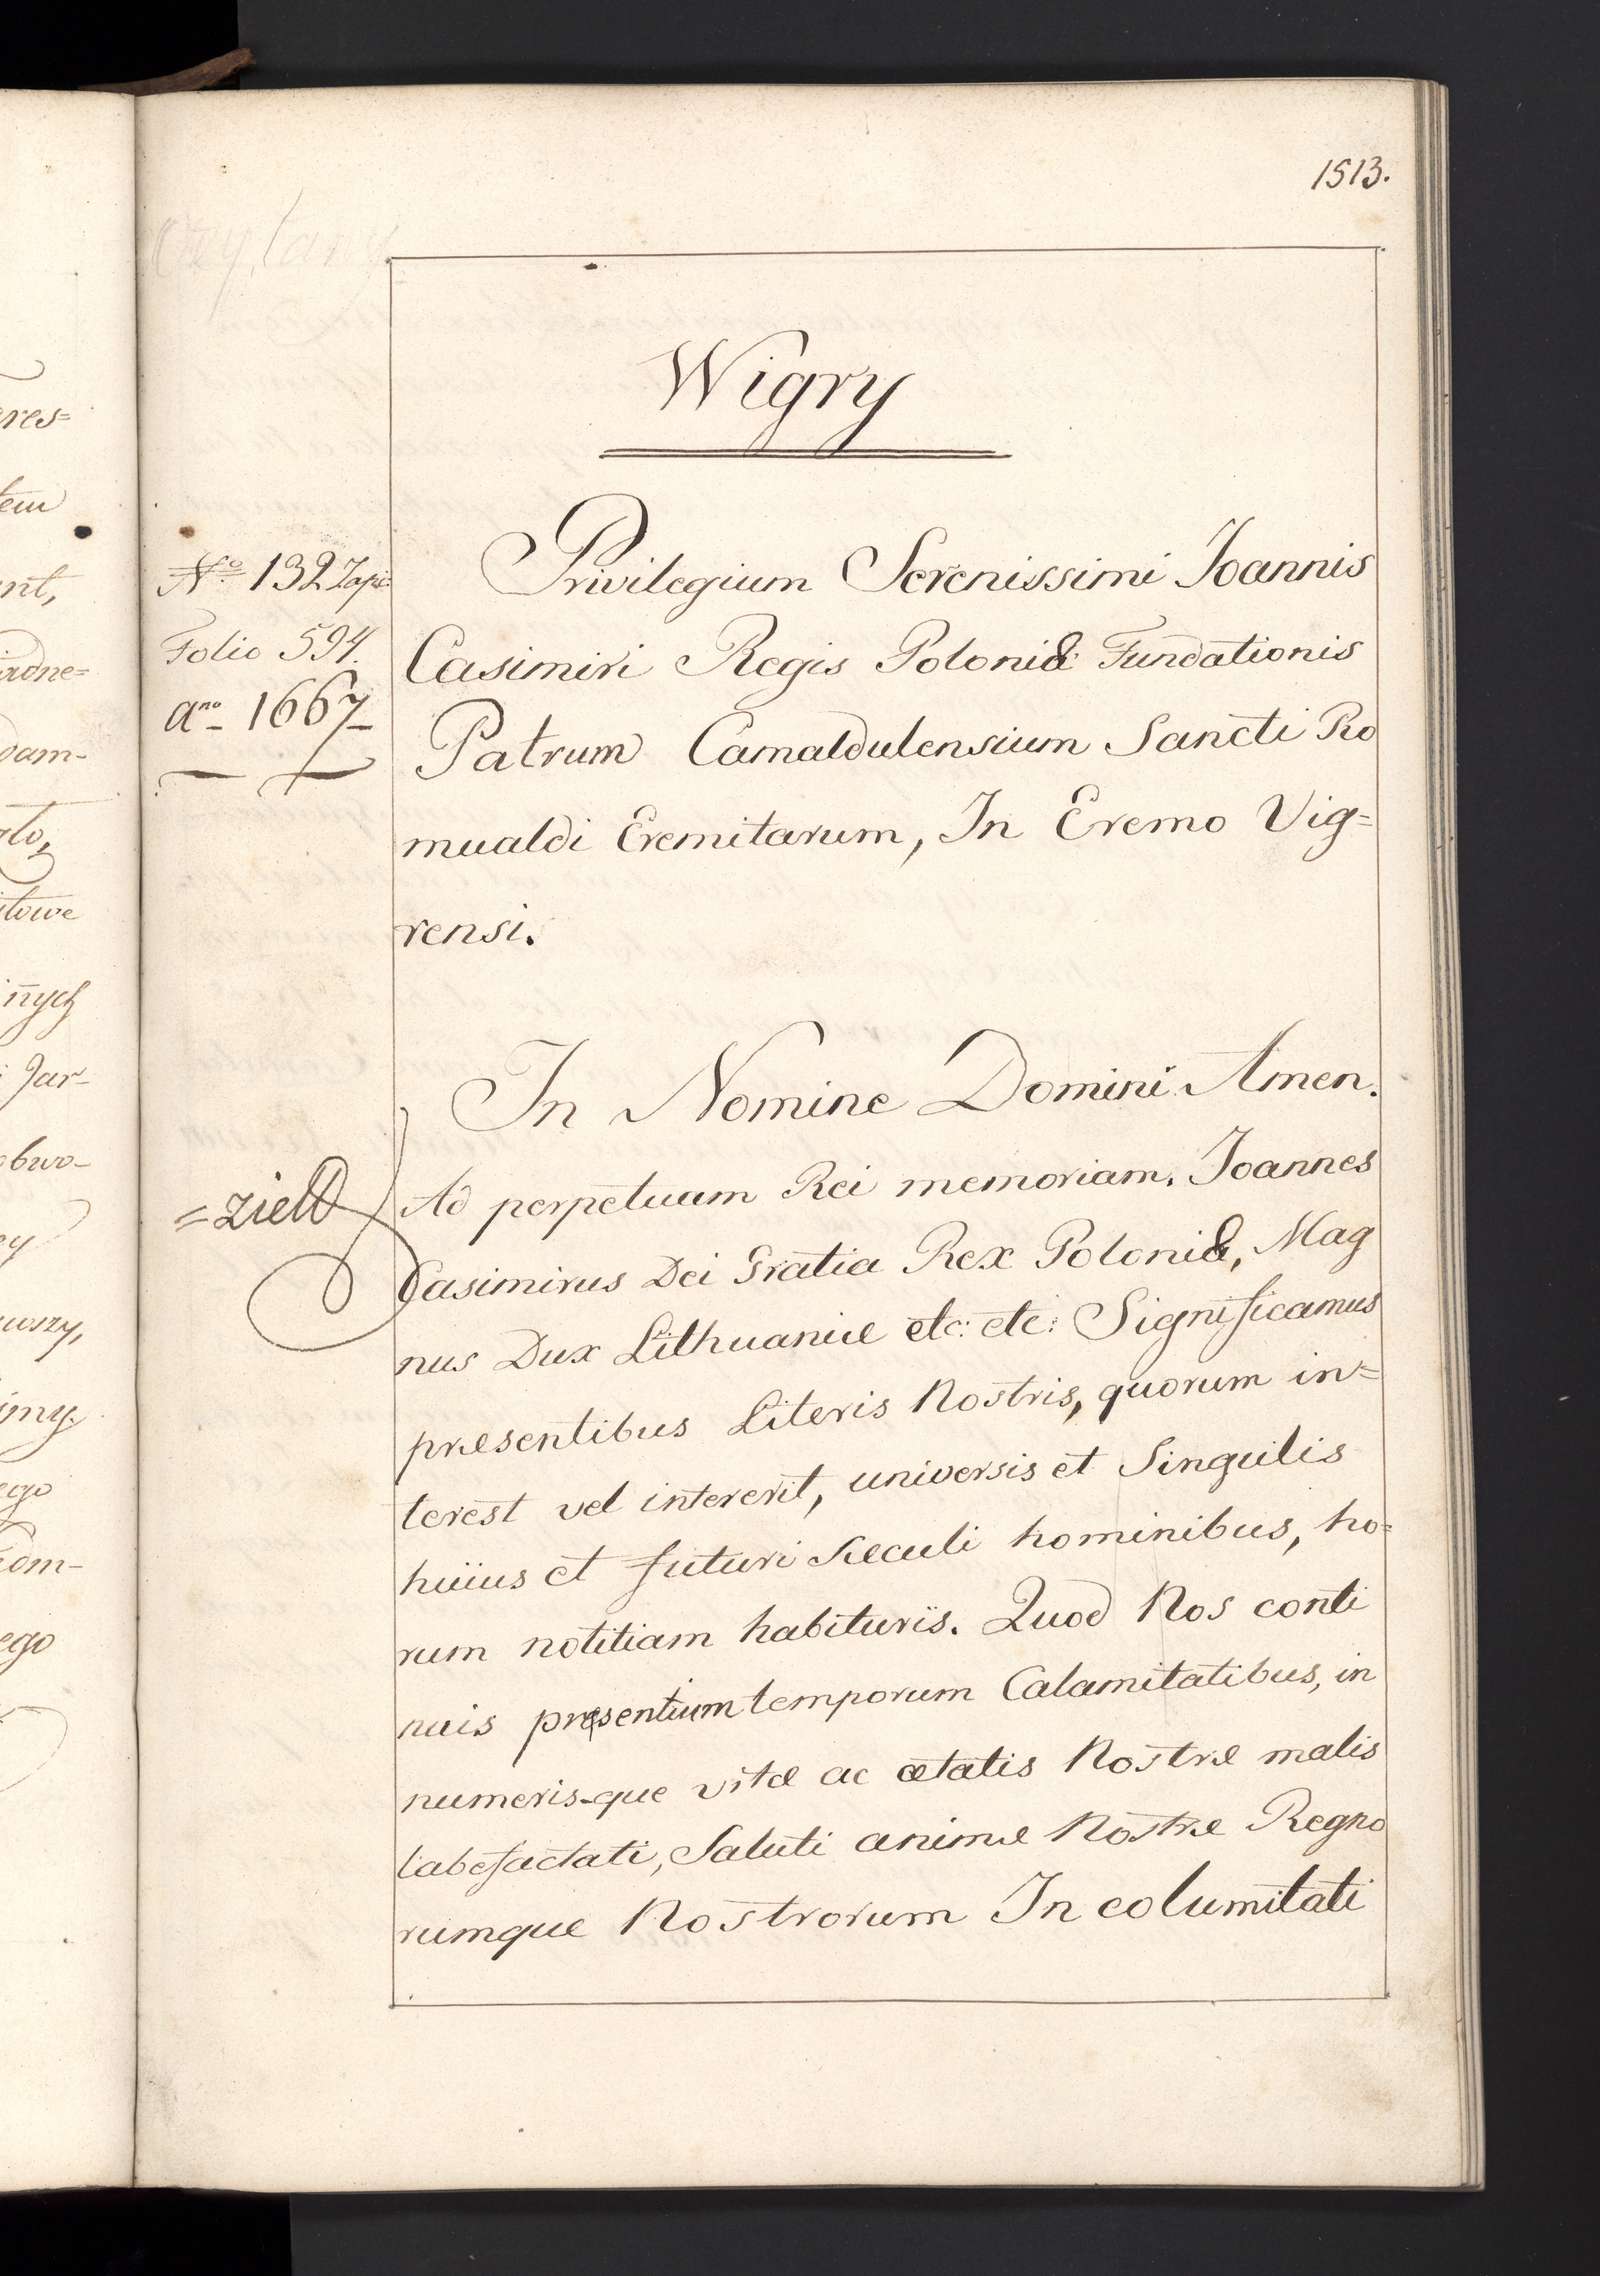 1513.
Wigry
No 132 Zapis
Folio 594.
ano 1667
Privilegium Serenissimi Joannis
Casimiri Regis Poloniæ Fundationis
Patrum Camaldulensium Sancti Ro
mualdi Eremitarum, In Eremo Vig=
rensi.
In Nomine Domini Amen.
Ad perpetuam Rei memoriam. Joannes
Casimirus Dei Gratia Rex Poloniæ, Mag
nus Dux Lithuaniæ etc: etc: Significamus
præsentibus Literis Nostris, quorum in=
terest vel intererit, universis et Singulis
huius et futuri Sæculi hominibus, ho=
rum notitiam habituris. Quod Nos conti
nuis præsentium temporum Calamitatibus, in
numeris-que vitæ ac ætatis Nostræ malis
labefactati, Saluti animæ Nostræ Regno
rumque Nostrorum In columitati
res=
tem
nt,
adne=
dam-
rto,
itowe
innych
i Jar-
obwo-
ey
wszy,
imy.
ego
dom-
ego